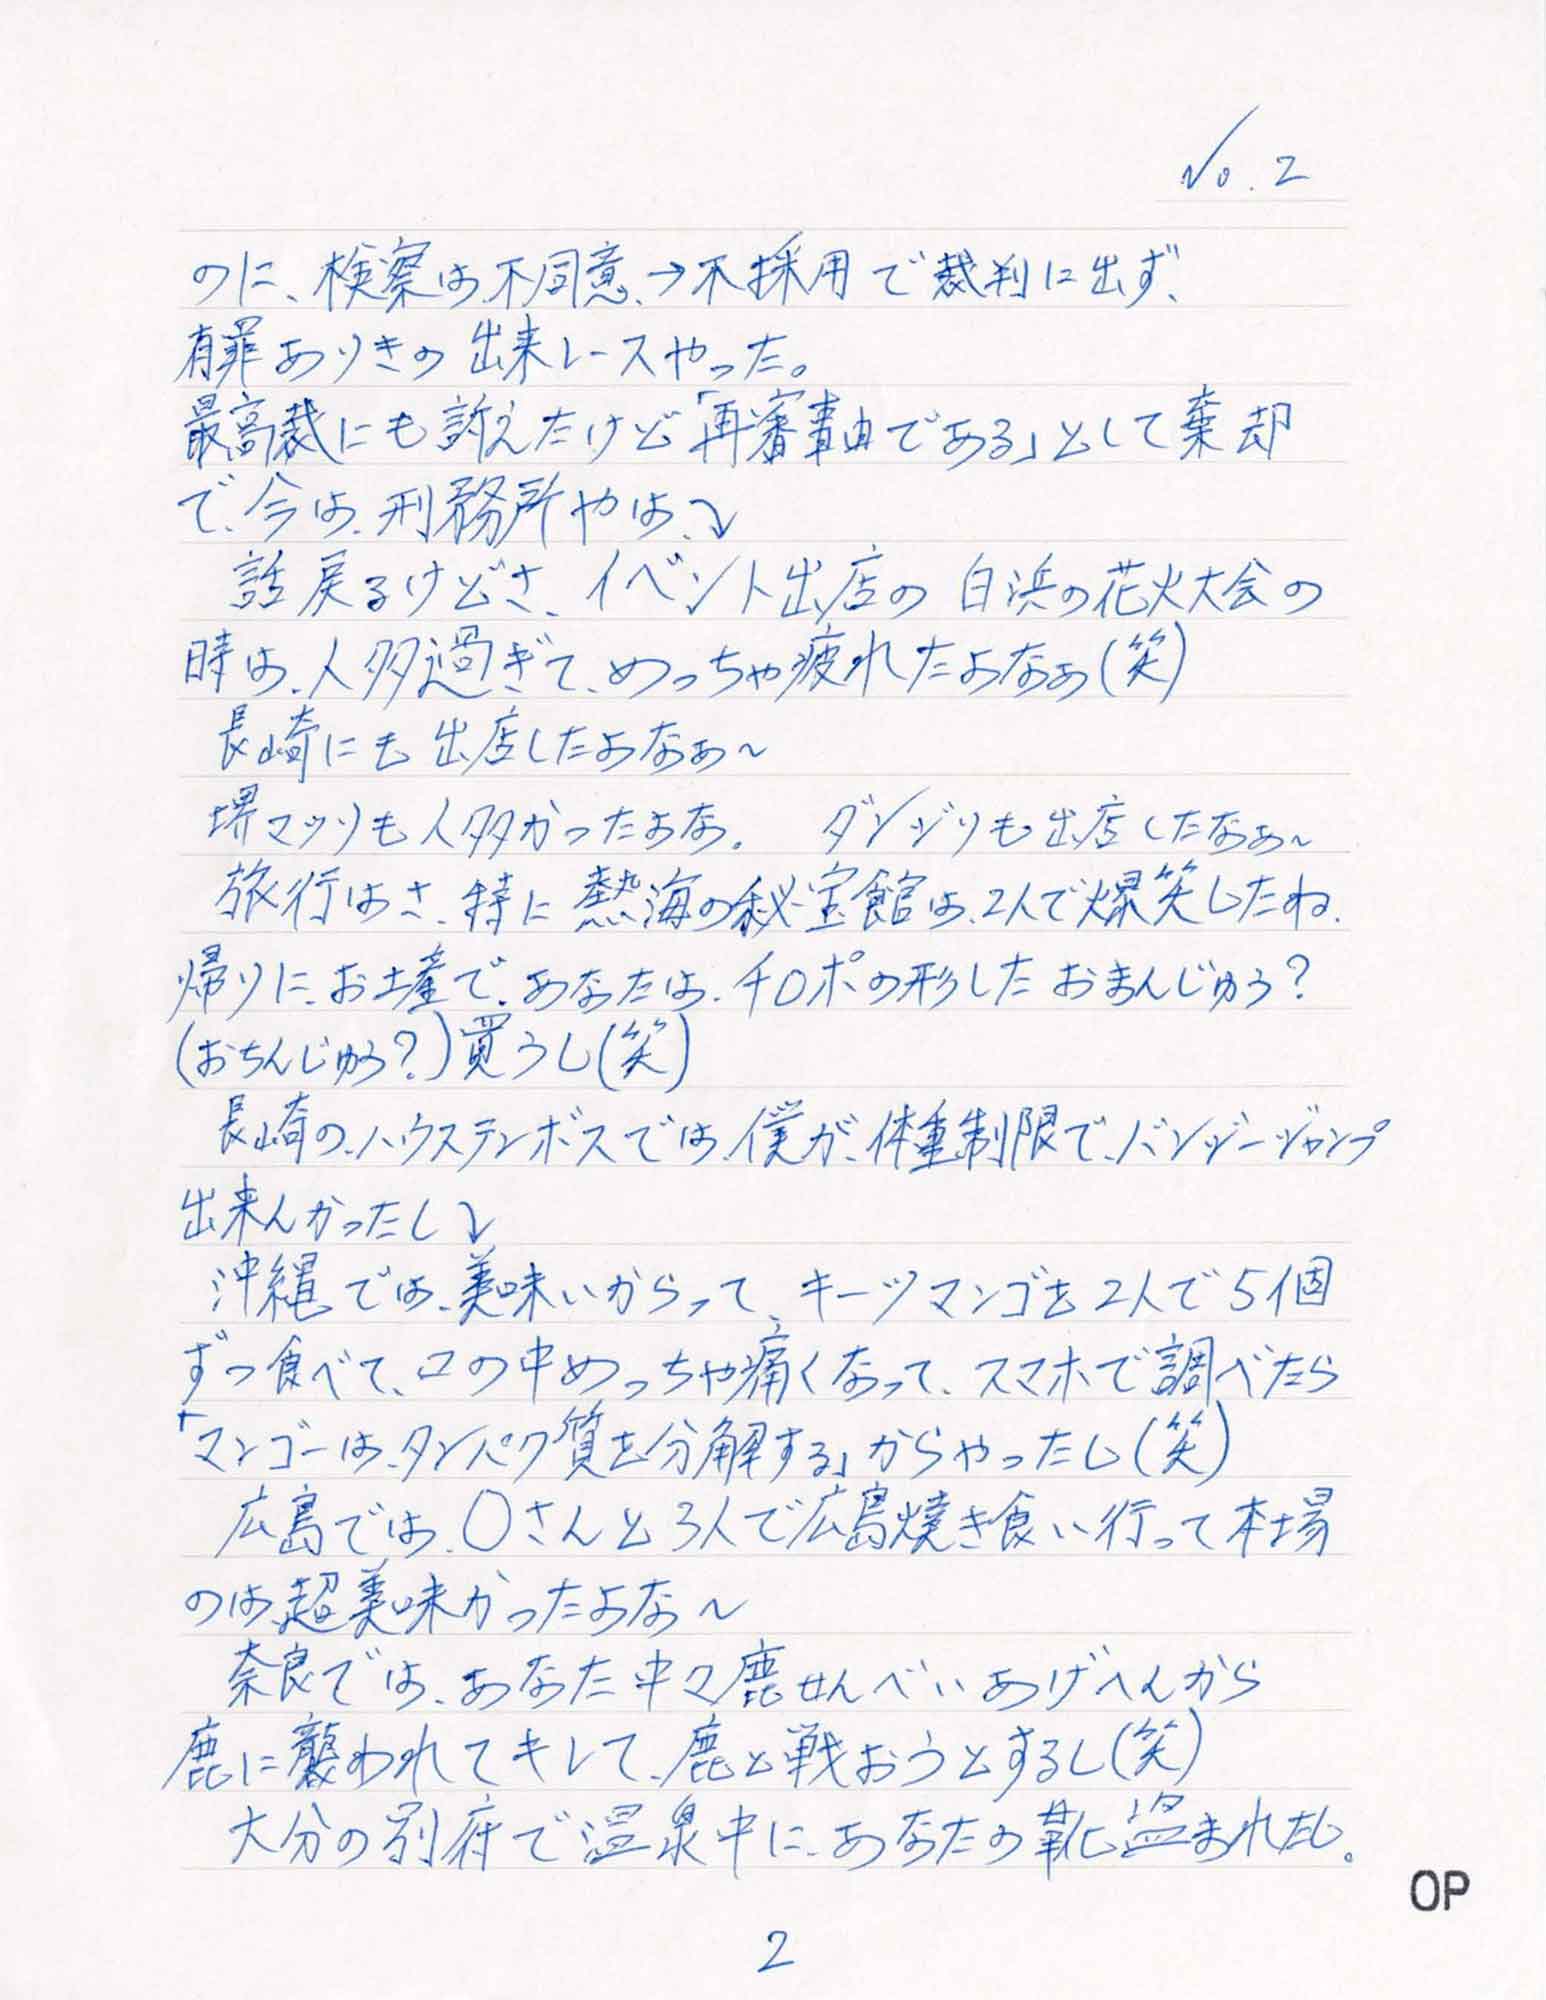 No.2
のに、検察は、不同意、→不採用で裁判に出ず、
有罪ありきの出来レースやった。
最高裁にも訴えたけど「再審事由である」として棄却
で、今は、刑務所やは、↘
話戻るけどさ、イベント出店の白浜の花火大会の
時は、人多過ぎて、めっちゃ疲れたよなぁ(笑)
長崎にも出店したよなぁ~
堺マツリも人多かったよな。 ダンジリも出店したなぁ~
旅行はさ、特に熱海の秘宝館は、2人で爆笑したね、
帰りに、お土産で、あなたは、チ〇ポの形したおまんじゅう?
(おちんじゅう?)買うし(笑)
長崎の、ハウステンボスでは、僕が、体重制限で、バンジージャンプ
出来んかったし↘
沖縄では、美味いからって、キーツマンゴを2人で5個
ずつ食べて、口の中めっちゃ痛くなって、スマホで調べたら
「マンゴーは、タンパク質を分解する」からやったし(笑)
広島では、〇さんと3人で広島焼き食い行って本場
のは、超美味かったよな~
奈良では、あなた中々鹿せんべいあげへんから
鹿に襲われてキレて、鹿と戦おうとするし(笑)
大分の別府で温泉中に、あなたの靴盗まれたし。
OP
2